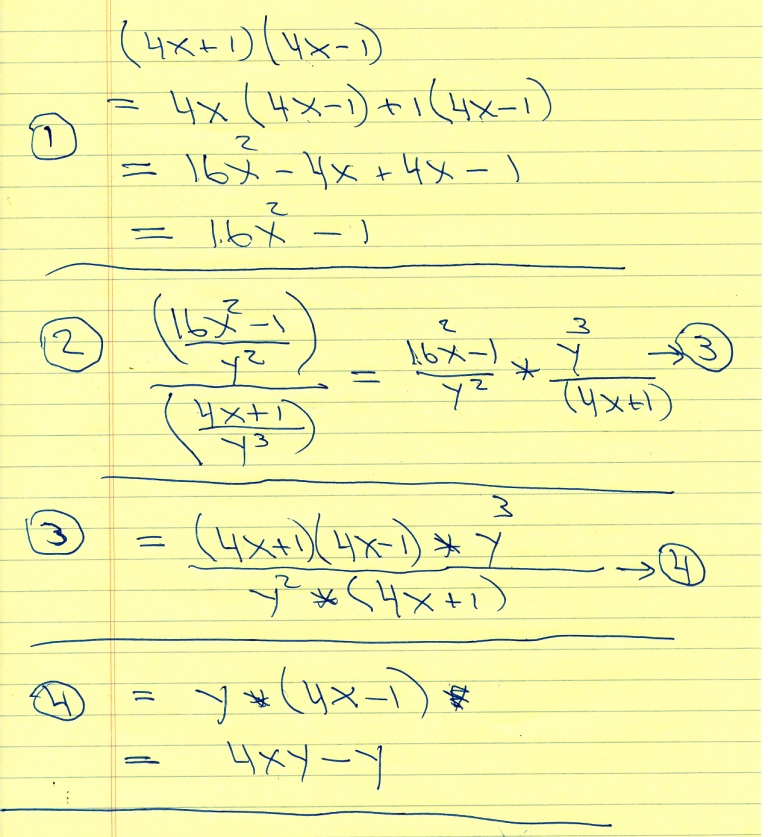 (4x+1)(4x-1)
= 4x(4x-1)+1(4x-1)
① = 16x² - 4x + 4x - 1
= 16x² - 1
② ((16x²-1)/y²)/((4x+1)/y³) = (16x²-1)/y² * y³/(4x+1) → ③
③ = ((4x+1)(4x-1) * y³)/(y² * (4x+1)) → ④
④ = y * (4x-1) *
= 4xy - y